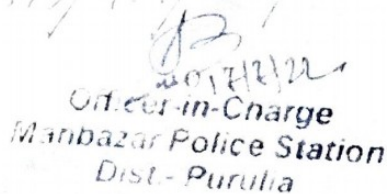 Officer-in-Charge
Manbazar Police Station
Dist.- Purulia